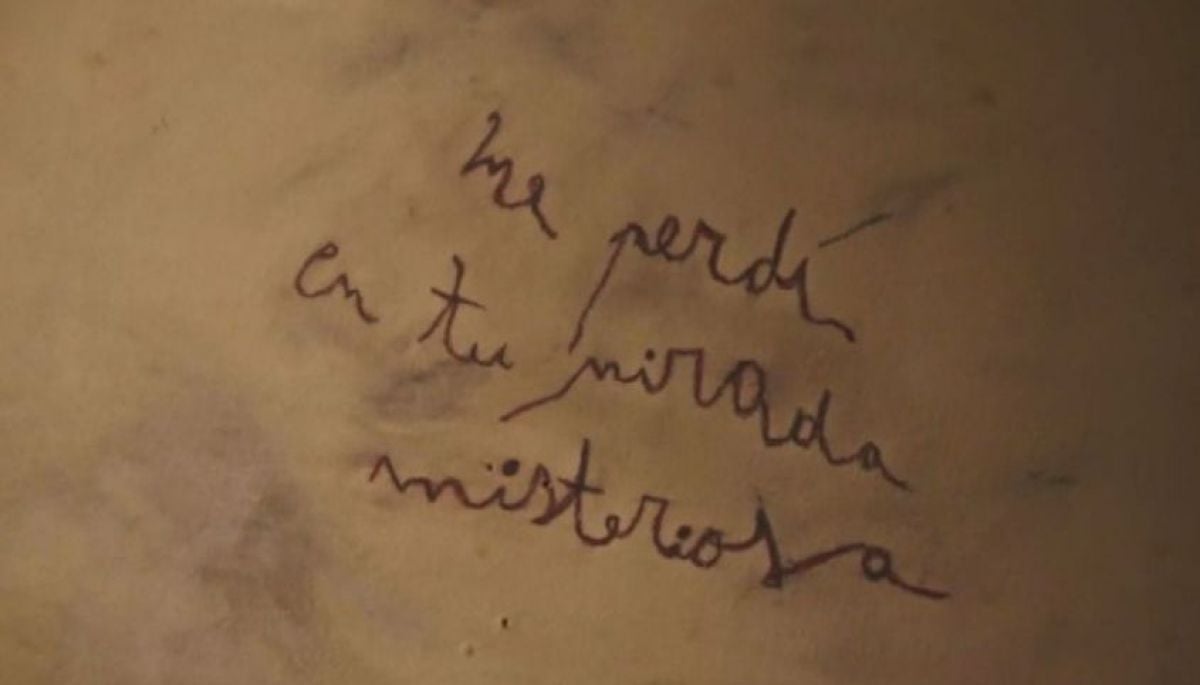 Me perdí
en tu mirada
misteriosa